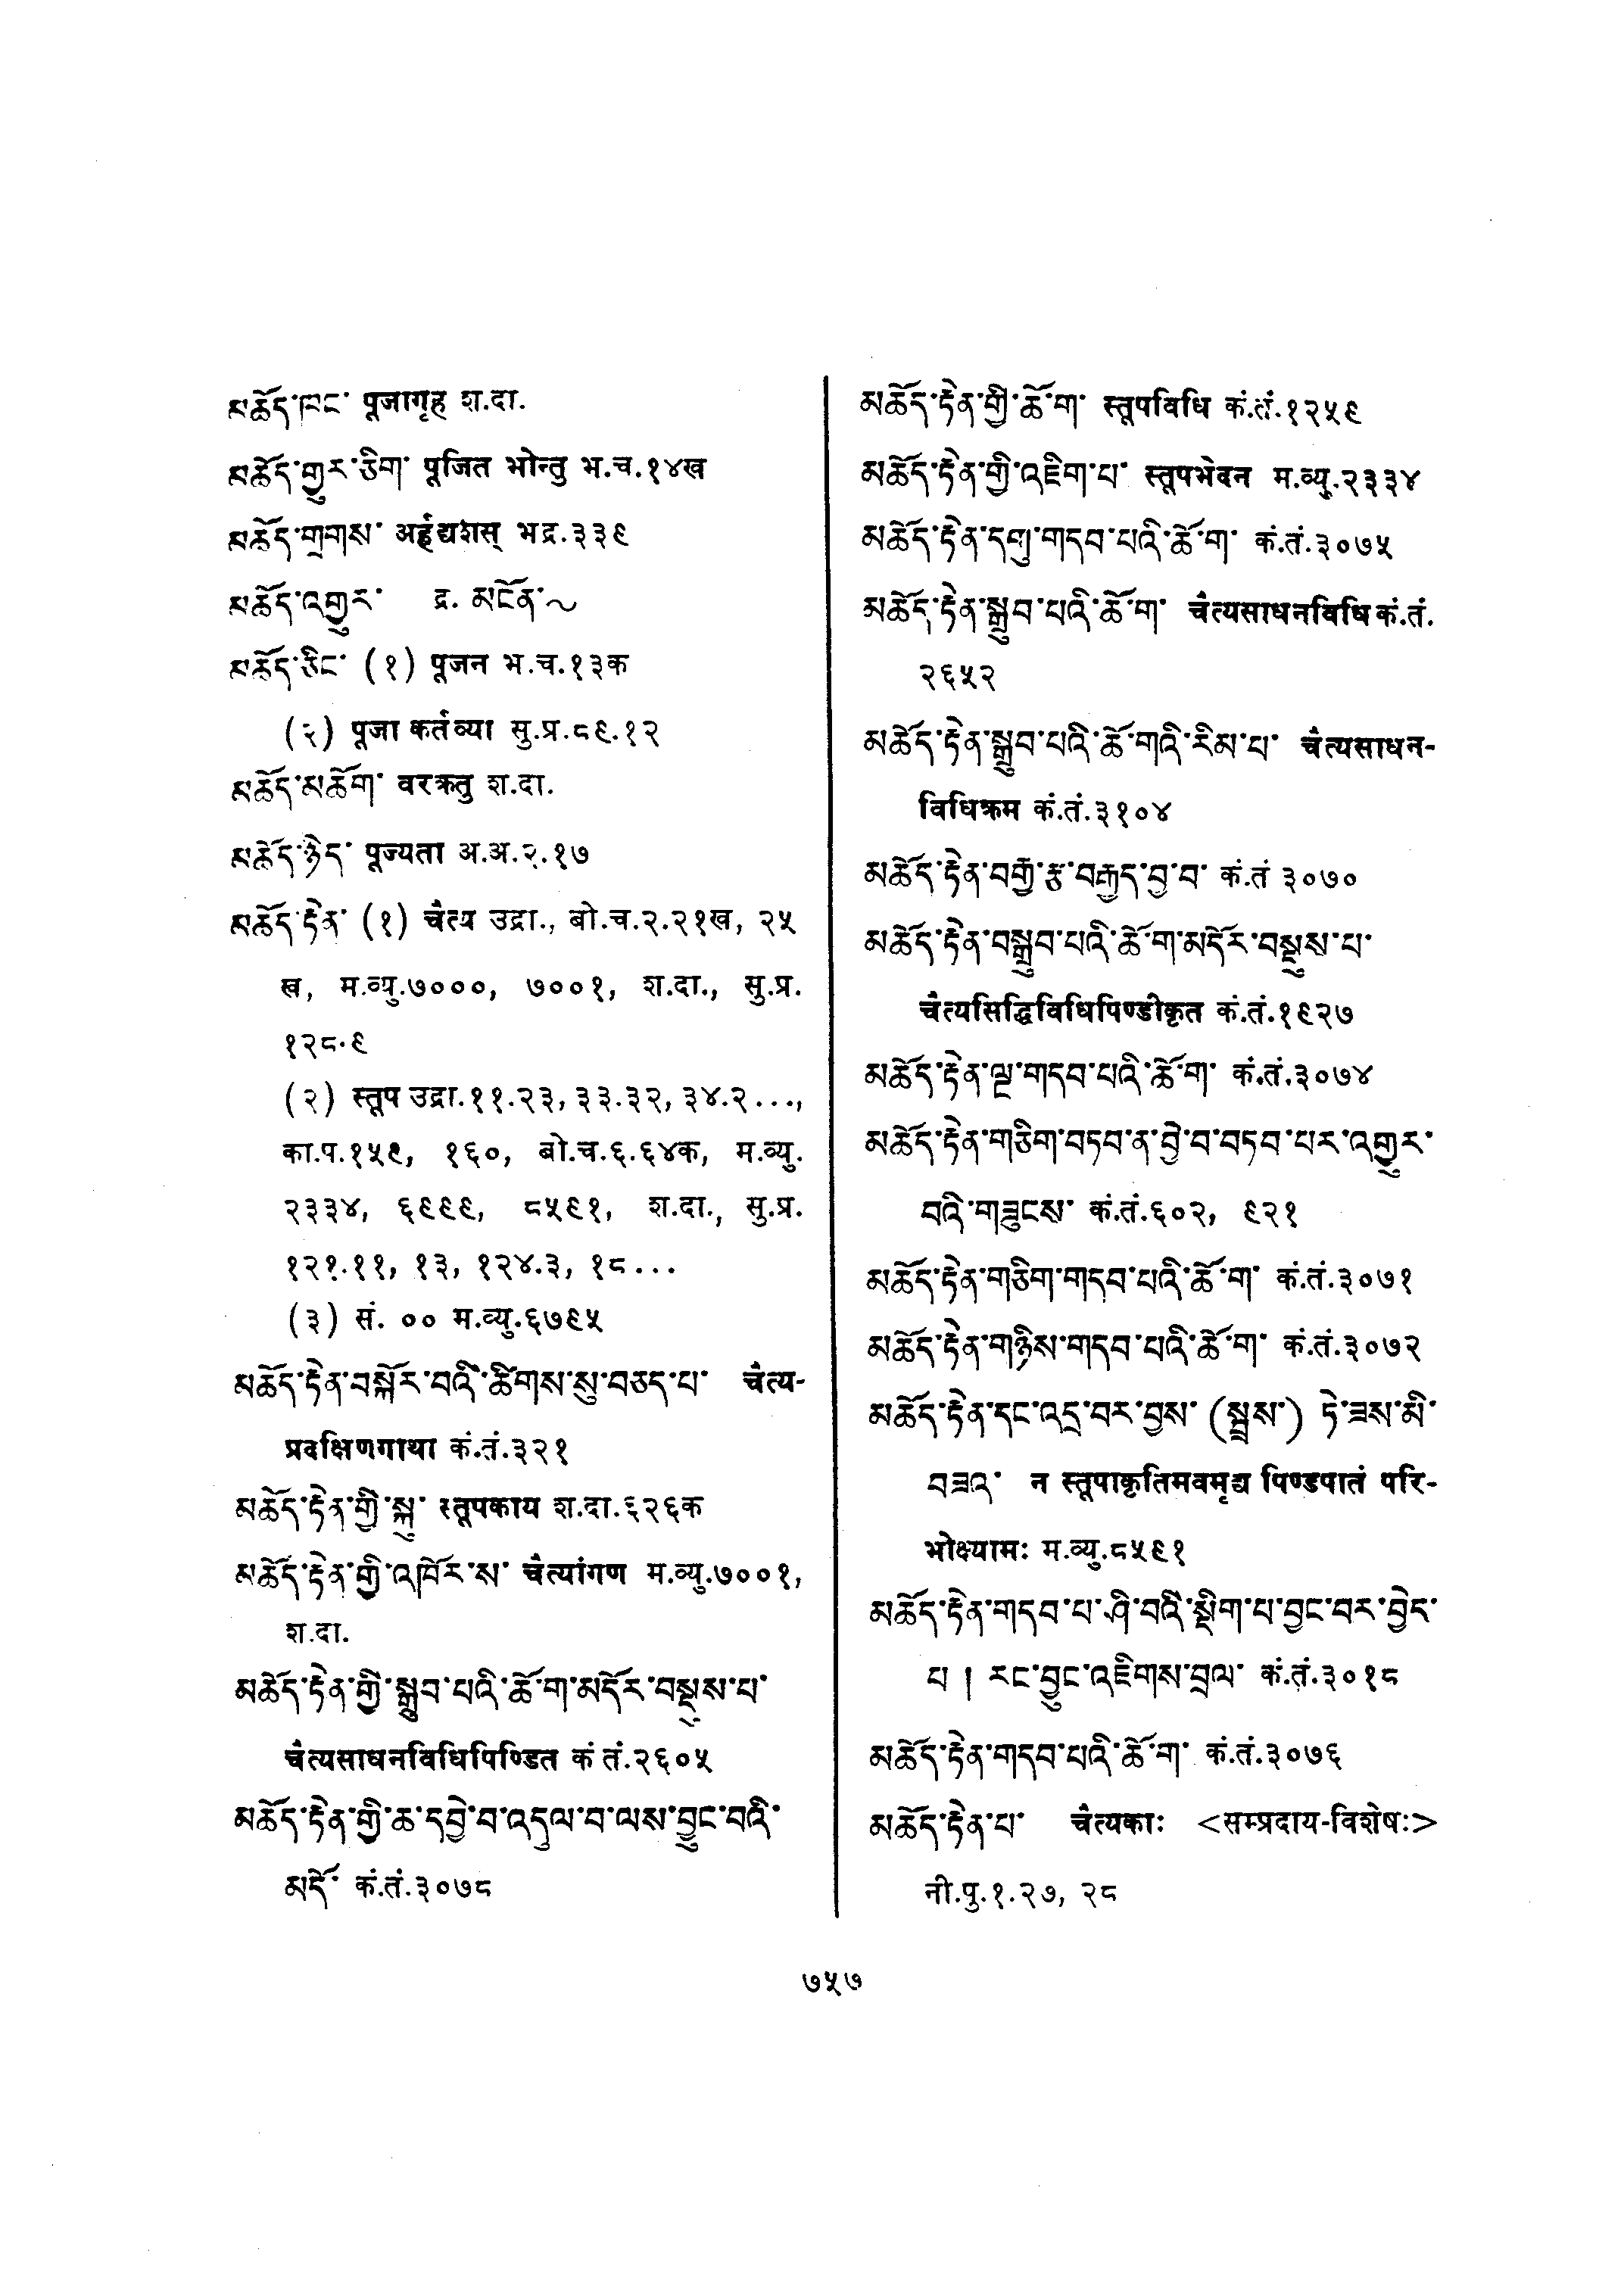 མཆོད་ཁང་ पूजागृह श.दा.
མཆོད་གྱུར་ཅིག་ पूजित भोन्तु भ.च.१४ख
མཆོད་གྲགས་ अर्हद्यशस् भद्र.३३९
མཆོད་འགྱུར་ द्र. མངོན་~
མཆོད་ཅིང་ (१) पूजन भ.च.१३क
(२) पूजा कर्तव्या सु.प्र.८९.१२
མཆོད་མཆོག་ वरक्रतु श.दा.
མཆོད་ཉེད་ पूज्यता अ.अ.२.१७
མཆོད་རྟེན་ (१) चैत्य उद्रा., बो.च.२.२१ख, २५
ख, म.व्यु.७०००, ७००१, श.दा., सु.प्र.
१२८.९
(२) स्तूप उद्रा.११.२३, ३३.३२, ३४.२...,
का.प.१५९, १६०, बो.च.६.६४क, म.व्यु.
२३३४, ६९९९, ८५९१, श.दा., सु.प्र.
१२१.११, १३, १२४.३, १८...
(३) सं. ०० म.व्यु.६७९५
མཆོད་རྟེན་བསྐོར་བའི་ཚིགས་སུ་བཅད་པ་ चैत्य-
प्रदक्षिणगाथा कं.तं.३२१
མཆོད་རྟེན་གྱི་སྐུ་ स्तूपकाय श.दा.६२६क
མཆོད་རྟེན་གྱི་འཁོར་ས་ चैत्यांगण म.व्यु.७००१,
श.दा.
མཆོད་རྟེན་གྱི་སྒྲུབ་པའི་ཆོ་ག་མདོར་བསྡུས་པ་
चैत्यसाधनविधिपिण्डित कं तं.२६०५
མཆོད་རྟེན་གྱི་ཆ་དབྱེ་བ་འདུལ་བ་ལས་བྱུང་བའི་
མདོ་ कं.तं.३०७८
མཆོད་རྟེན་གྱི་ཆོ་ག་ स्तूपविधि कं.तं.१२५९
མཆོད་རྟེན་གྱི་འཇིག་པ་ स्तूपभेदन म.व्यु.२३३४
མཆོད་རྟེན་དགུ་གདབ་པའི་ཆོ་ག་ कं.तं.३०७५
མཆོད་རྟེན་སྒྲུབ་པའི་ཆོ་ག་ चैत्यसाधनविधि कं.तं.
२६५२
མཆོད་རྟེན་སྒྲུབ་པའི་ཆོ་གའི་རིམ་པ་ चैत्यसाधन-
विधिक्रम कं.तं.३१०४
མཆོད་རྟེན་བརྒྱ་རྩ་བརྒྱད་བྱ་བ་ कं.तं ३०७०
མཆོད་རྟེན་བསྒྲུབ་པའི་ཆོ་ག་མདོར་བསྡུས་པ་
चैत्यसिद्धिविधिपिण्डीकृत कं.तं.१९२७
མཆོད་རྟེན་ལྔ་གདབ་པའི་ཆོ་ག་ कं.तं.३०७४
མཆོད་རྟེན་གཅིག་བཏབ་ན་བྱེ་བ་བཏབ་པར་འགྱུར་
བའི་གཟུངས་ कं.तं.६०२, ९२१
མཆོད་རྟེན་གཅིག་གདབ་པའི་ཆོ་ག་ कं.तं.३०७१
མཆོད་རྟེན་གཉིས་གདབ་པའི་ཆོ་ག་ कं.तं.३०७२
མཆོད་རྟེན་དང་འདྲ་བར་བྱས་ (སྦྲས་) ཏེ་ཟས་མི་
བཟའ་ न स्तूपाकृतिमवमृद्य पिण्डपातं परि-
भोक्ष्यामः म.व्यु.८५९१
མཆོད་རྟེན་གདབ་པ་ཤི་བའི་སྡིག་པ་བྱང་བར་བྱེད་
པ། རང་བྱུང་འཇིགས་བྲལ་ कं.तं.३०१८
མཆོད་རྟེན་གདབ་པའི་ཆོ་ག་ कं.तं.३०७६
མཆོད་རྟེན་པ་ चैत्यकाः <सम्प्रदाय-विशेषः>
नी.पु.१.२७, २८
७५७